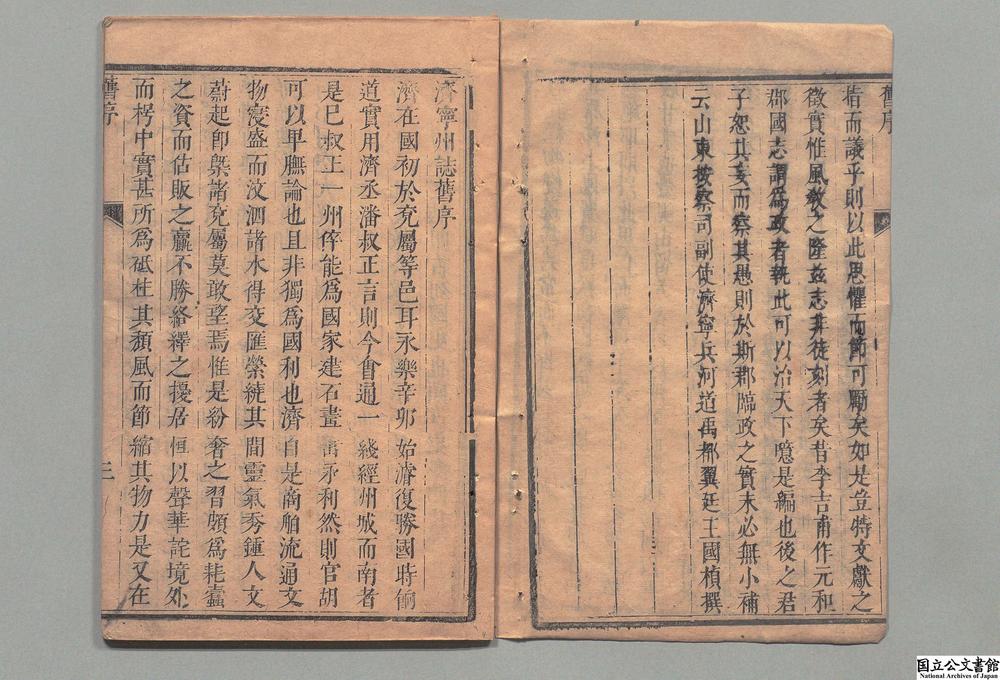 舊序
㫖而議乎則以此思懼而節可勵矣如是豈特文獻之
徵實惟風敎之隆茲志非徒刻者矣昔李吉甫作元和
郡國志謂爲政者執此可以治天下噫是編也後之君
子恕其妄而察其愚則於斯郡臨政之實未必無小補
云山東按察司副使濟寧兵河道禹都翼廷王國楨撰
濟寧州誌舊序
濟在國初於兖屬等邑耳永樂辛卯始濬復勝國時
道實用濟丞潘叔正言則今會通一綫經州城而南者
是巳叔正一州倅能爲國家建石畫 永利然則官胡
可以早膴論也且非獨爲國利也濟自是商舶流通文
物寖盛而汶泗諸水得交匯縈繞其間靈氣秀鍾人文
蔚起卽槩諸兖屬莫敢望焉惟是紛奢之習頗爲耗蠹
之資而估販之贏不勝絡繹之擾居恒以聲華詫境外
而楞中實甚所爲砥柱其頽風而節縮其物力是又在
舊序
三
国立公文書館
National Archives of Japan